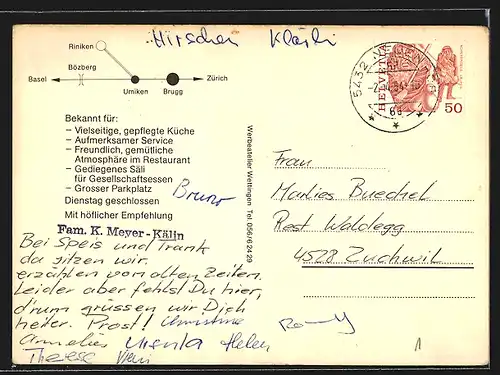 Hirschen Klärli
Riniken
Bözberg
Basel
Zürich
Umiken
Brugg
5432
HELVETIA
50
Bekannt für:
– Vielseitige, gepflegte Küche
– Aufmerksamer Service
– Freundlich, gemütliche
Atmosphäre im Restaurant
– Gediegenes Säli
für Gesellschaftsessen
– Grosser Parkplatz
Dienstag geschlossen
Bruno
Mit höflicher Empfehlung
Fam. K. Meyer-Kälin
Werbeatelier Wettingen Tel. 056/6 24 29
Bei Speis und Trank
da sitzen wir
erzählen von alten Zeiten.
Leider aber fehlst Du hier,
d'rum grüssen wir Dich
heiter. Prost! Christine
Annelies Ursula Helen
Therese
Frau
Marlies Buechel
Rest. Waldegg
4528 Zuchwil
1